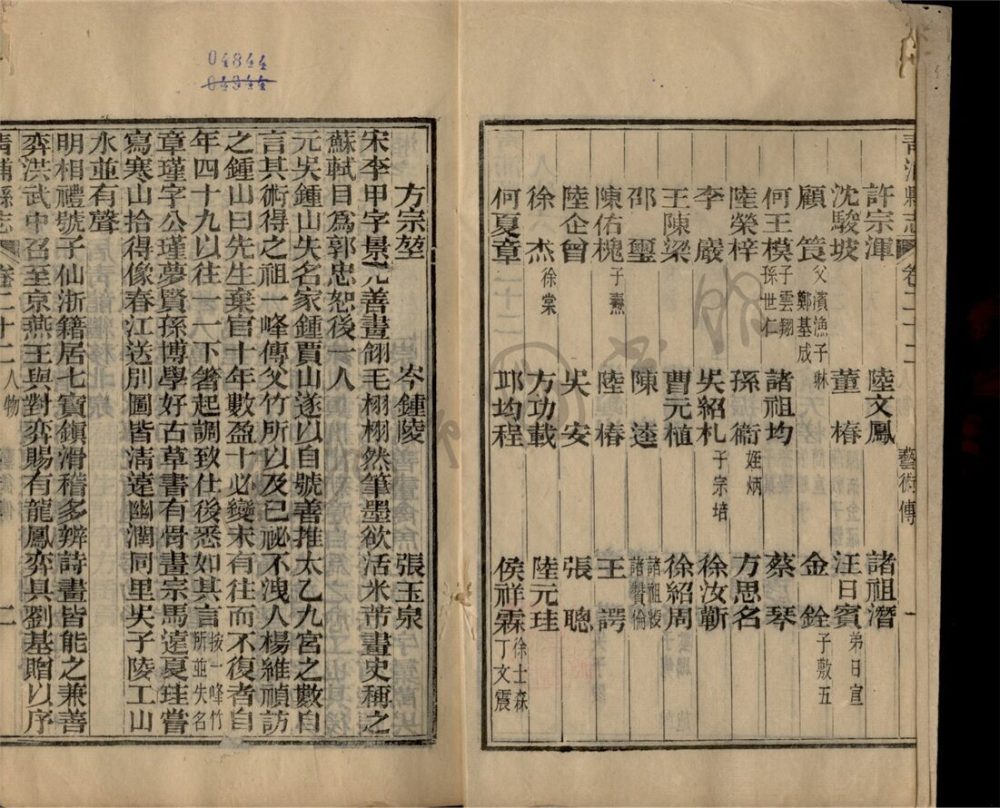 青浦縣志 卷二十二 藝術傳 一
許宗渾 陸文鳳 諸祖潛
沈駿坡 董椿 汪日賓 弟日宣
顧笻 父濱漁子琳 鄭基成 金銓 子敷五
何王模 子雲翔 孫世仁 諸祖均 蔡琴
陸榮梓 孫衜 姪炳 方思名
李嚴 吳紹札 子宗培 徐汝蘄
王陳梁 曹元植 徐紹周
邵璽 陳逵 諸祖綬 諸贊倫
陳佑槐 子燾 陸椿 王諤
陸企曾 吳安 張聰
徐杰 徐棠 方功載 陸元珪
何夏章 邛均程 侯祥霖 徐士森 丁文震
04844
04944
方宗堃 岑鍾陵 張玉泉
宋李甲字景元善畫翎毛栩栩然筆墨欲活米芾畫史稱之
蘇軾目爲郭忠恕後一人
元吳鍾山失名家鍾賈山遂以自號善推太乙九宮之數自
言其術得之祖一峰傳父竹所以及已祕不洩人楊維禎訪
之鍾山曰先生棄官十年數盈十必變末有往而不復者自
年四十九以往一一下箸起調致仕後悉如其言 按一峰竹所並失名
章瑾字公瑾夢賢孫博學好古草書有骨畫宗馬遠夏珪嘗
寫寒山拾得像春江送別圖皆淸遠幽潤同里吳子陵工山
水並有聲
明相禮號子仙浙籍居七寶鎭滑稽多辨詩畫皆能之兼善
弈洪武中召至京燕王與對弈賜有龍鳳弈具劉基贈以序
青浦縣志 卷二十二 人物 藝術傳 二